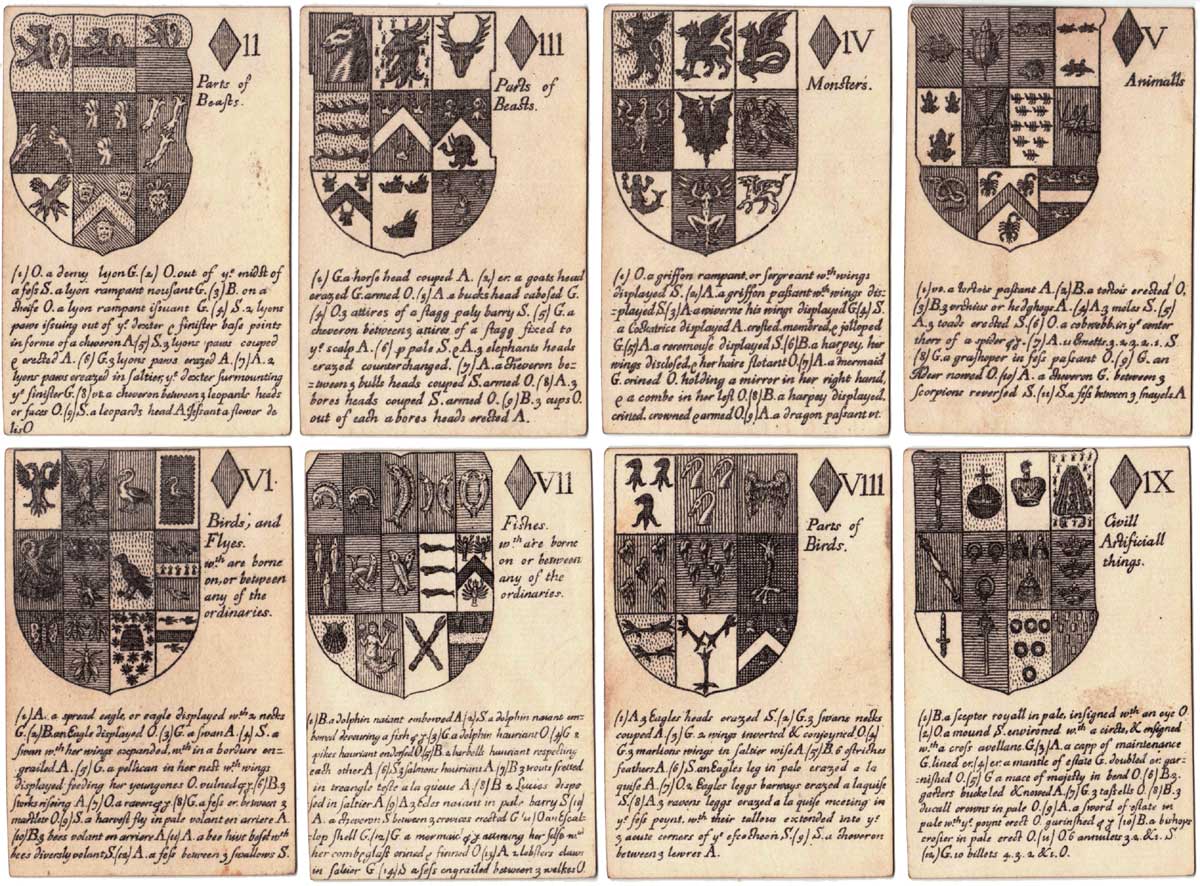 II
Parts of
Beasts.
(1) O. a demy lyon G. (2) O. out of yᵉ midst of
a fess S. a lyon rampant nousant G. (3) B. on a
cheife O. a lyon rampant issuant G. (4) S. 2 lyons
paws issuing out of yᵉ dexter & sinister base points
in forme of a cheveron A (5) S. 3 lyons paws couped
& erected A. (6) G. 3 lyons paws erazed A (7) A. 2
lyons paws erazed in saltier, yᵉ dexter surmounting
yᵉ sinister G. (8) vt. a cheveron between 3 leopards heads
or faces O. (9) S. a leopards head A Jessant a flower de
lis O
III
Parts of
Beasts.
(1) G. a horse head couped A. (2) er. a goats head
erazed G. armed O. (3) A. a bucks head cabosed G.
(4) O 3 attires of a stagg paly barry S. (5) G. a
cheveron between 3 attires of a stagg fixed to
yᵉ scalp A. (6) p pale S. & A. 3 elephants heads
erazed counterchanged. (7) A. a cheveron be-
tween 3 bulls heads couped S. armed O. (8) A. 3
bores heads couped S. armed O. (9) B. 3 cups O.
out of each a bores head erected A.
IV
Monsters.
(1) O. a griffon rampant, or sergreant wᵗʰ wings
displayed S. (2) A. a griffon passant wᵗʰ wings dis-
played S (3) A. a wiverne his wings displayed G (4) S.
a Cockatrice displayed A. crested, membred, & jolloped
G. (5) A. a reremouse displayed S. (6) B. a harpey, her
wings disclosed, & her haire flotant O. (7) A. a mermaid
G. crined O. holding a mirror in her right hand,
& a combe in her left O. (8) B. a harpey displayed,
crined, crowned & armed O. (9) A. a dragon passant vt.
V
Animalls
(1) vt. a tortois passant A. (2) B. a tortois erected O,
(3) B. 3 erchius or hedghogs A. (4) A. 3 moles S. (5)
A. 3 toads erected S. (6) O. a cobwebb, in yᵉ center
therof a spider (7) A. 11 Emetts. 3. 2. 3. 2. 1. S.
(8) G. a grashoper in fess passant O. (9) G. an
Adder nowed O. (10) A. a cheveron G. between 3
scorpions reversed S. (11) S. a fess between 3 snayels A
VI.
Birds, and
Flyes.
wᶜʰ are borne
on, or between
any of the
ordinaries.
(1) A. a spread eagle, or eagle displayed wᵗʰ 2 necks
G. (2) B. an Eagle displayed O. (3) G. a swan A. (4) S. a
swan wᵗʰ her wings expanded, wᵗʰin a bordure en-
grailed A. (5) G. a pellican in her nest wᵗʰ wings
displayed feeding her youngones O. vulned (6) B. 3
storks riseing A. (7) O. a raven (8) G. a fess er. between 3
martlets O. (9) S. a harvest fly in pale volant en arriere A.
(10) B. 3 bees volant en arriere A (11) A. a bee hive beset wᵗʰ
bees diversly volant S. (12) A. a fess between 3 swallows S.
VII
Fishes.
wᶜʰ are borne
on or between
any of the
ordinaries.
(1) B. a dolphin naiant embowed A (2) S. a dolphin naiant em-
bowed devouring a fish (3) G. a dolphin hauriant O. (4) G 2
pikes hauriant endorsed O (5) B. 2 barbells hauriant respecting
each other A (6) S. 3 salmons hauriant A (7) B 3 trouts fretted
in treangle teste a la queue A. (8) B 2 Lucies dispo
sed in saltier A (9) A 3 Eeles naiant in pale barry S (10)
A. a cheveron S. between 3 crevices erected G (11) O an Escal-
lop shell G. (12) G a mermaid attiring her selfe wᵗʰ
her combe & glass crined & finned O (13) A 2 lobsters claws
in saltier G (14) S a fess engrailed between 3 welkes O
VIII
Parts of
Birds.
(1) A 3 Eagles heads erazed S. (2) G. 3 swans necks
couped A (3) G. 2 wings inverted & conjoyned O (4)
G 3 marlions wings in saltier wise A (5) B. 6 ostriches
feathers A (6) S. an Eagles leg in pale erazed a la
quise A. (7) O 2 Eagles leggs barways erazed a laquise
S. (8) A 3 ravens leggs erazed a la quise meeting in
yᵉ fess poynt, wᵗʰ their tallons extended into yᵉ
3 acute corners of yᵉ escocheon S. (9) S. a cheveron
between 3 lewres A.
IX
Civill
Artificiall
things.
(1) B. a scepter royall in pale, insigned wᵗʰ an eye O.
(2) O a mound S. environed wᵗʰ a circle, & ensigned
wᵗʰ a cross avellane G. (3) A. a capp of maintenance
G. lined er. (4) er. a mantle of estate G. doubled er. gar-
nished O. (5) G a mace of majesty in bend O. (6) B. 3.
garters buckeled & nowed A (7) G. 3 tassells O. (8) B. 3
ducall crowns in pale O. (9) A. a sword of estate in
pale wᵗʰ yᵉ poynt erect O. garnished (10) B. a bishops
crosier in pale erect O. (11) O 6 annulets 3. 2. & 1. S.
(12) G. 10 billets 4. 3. 2. & 1. O.